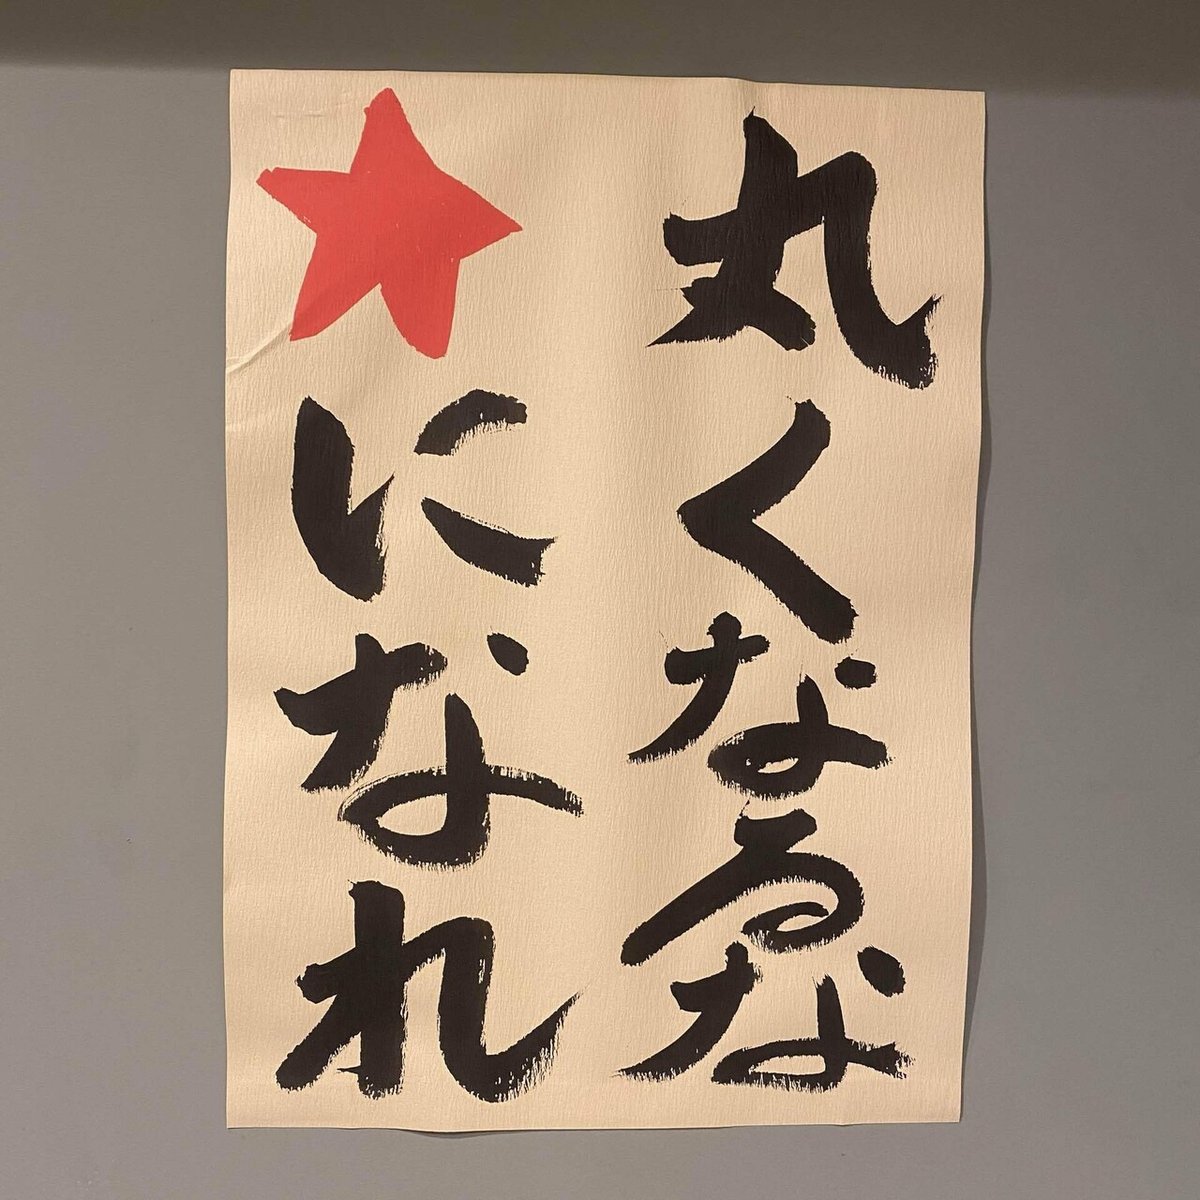 丸くなるな
★になれ